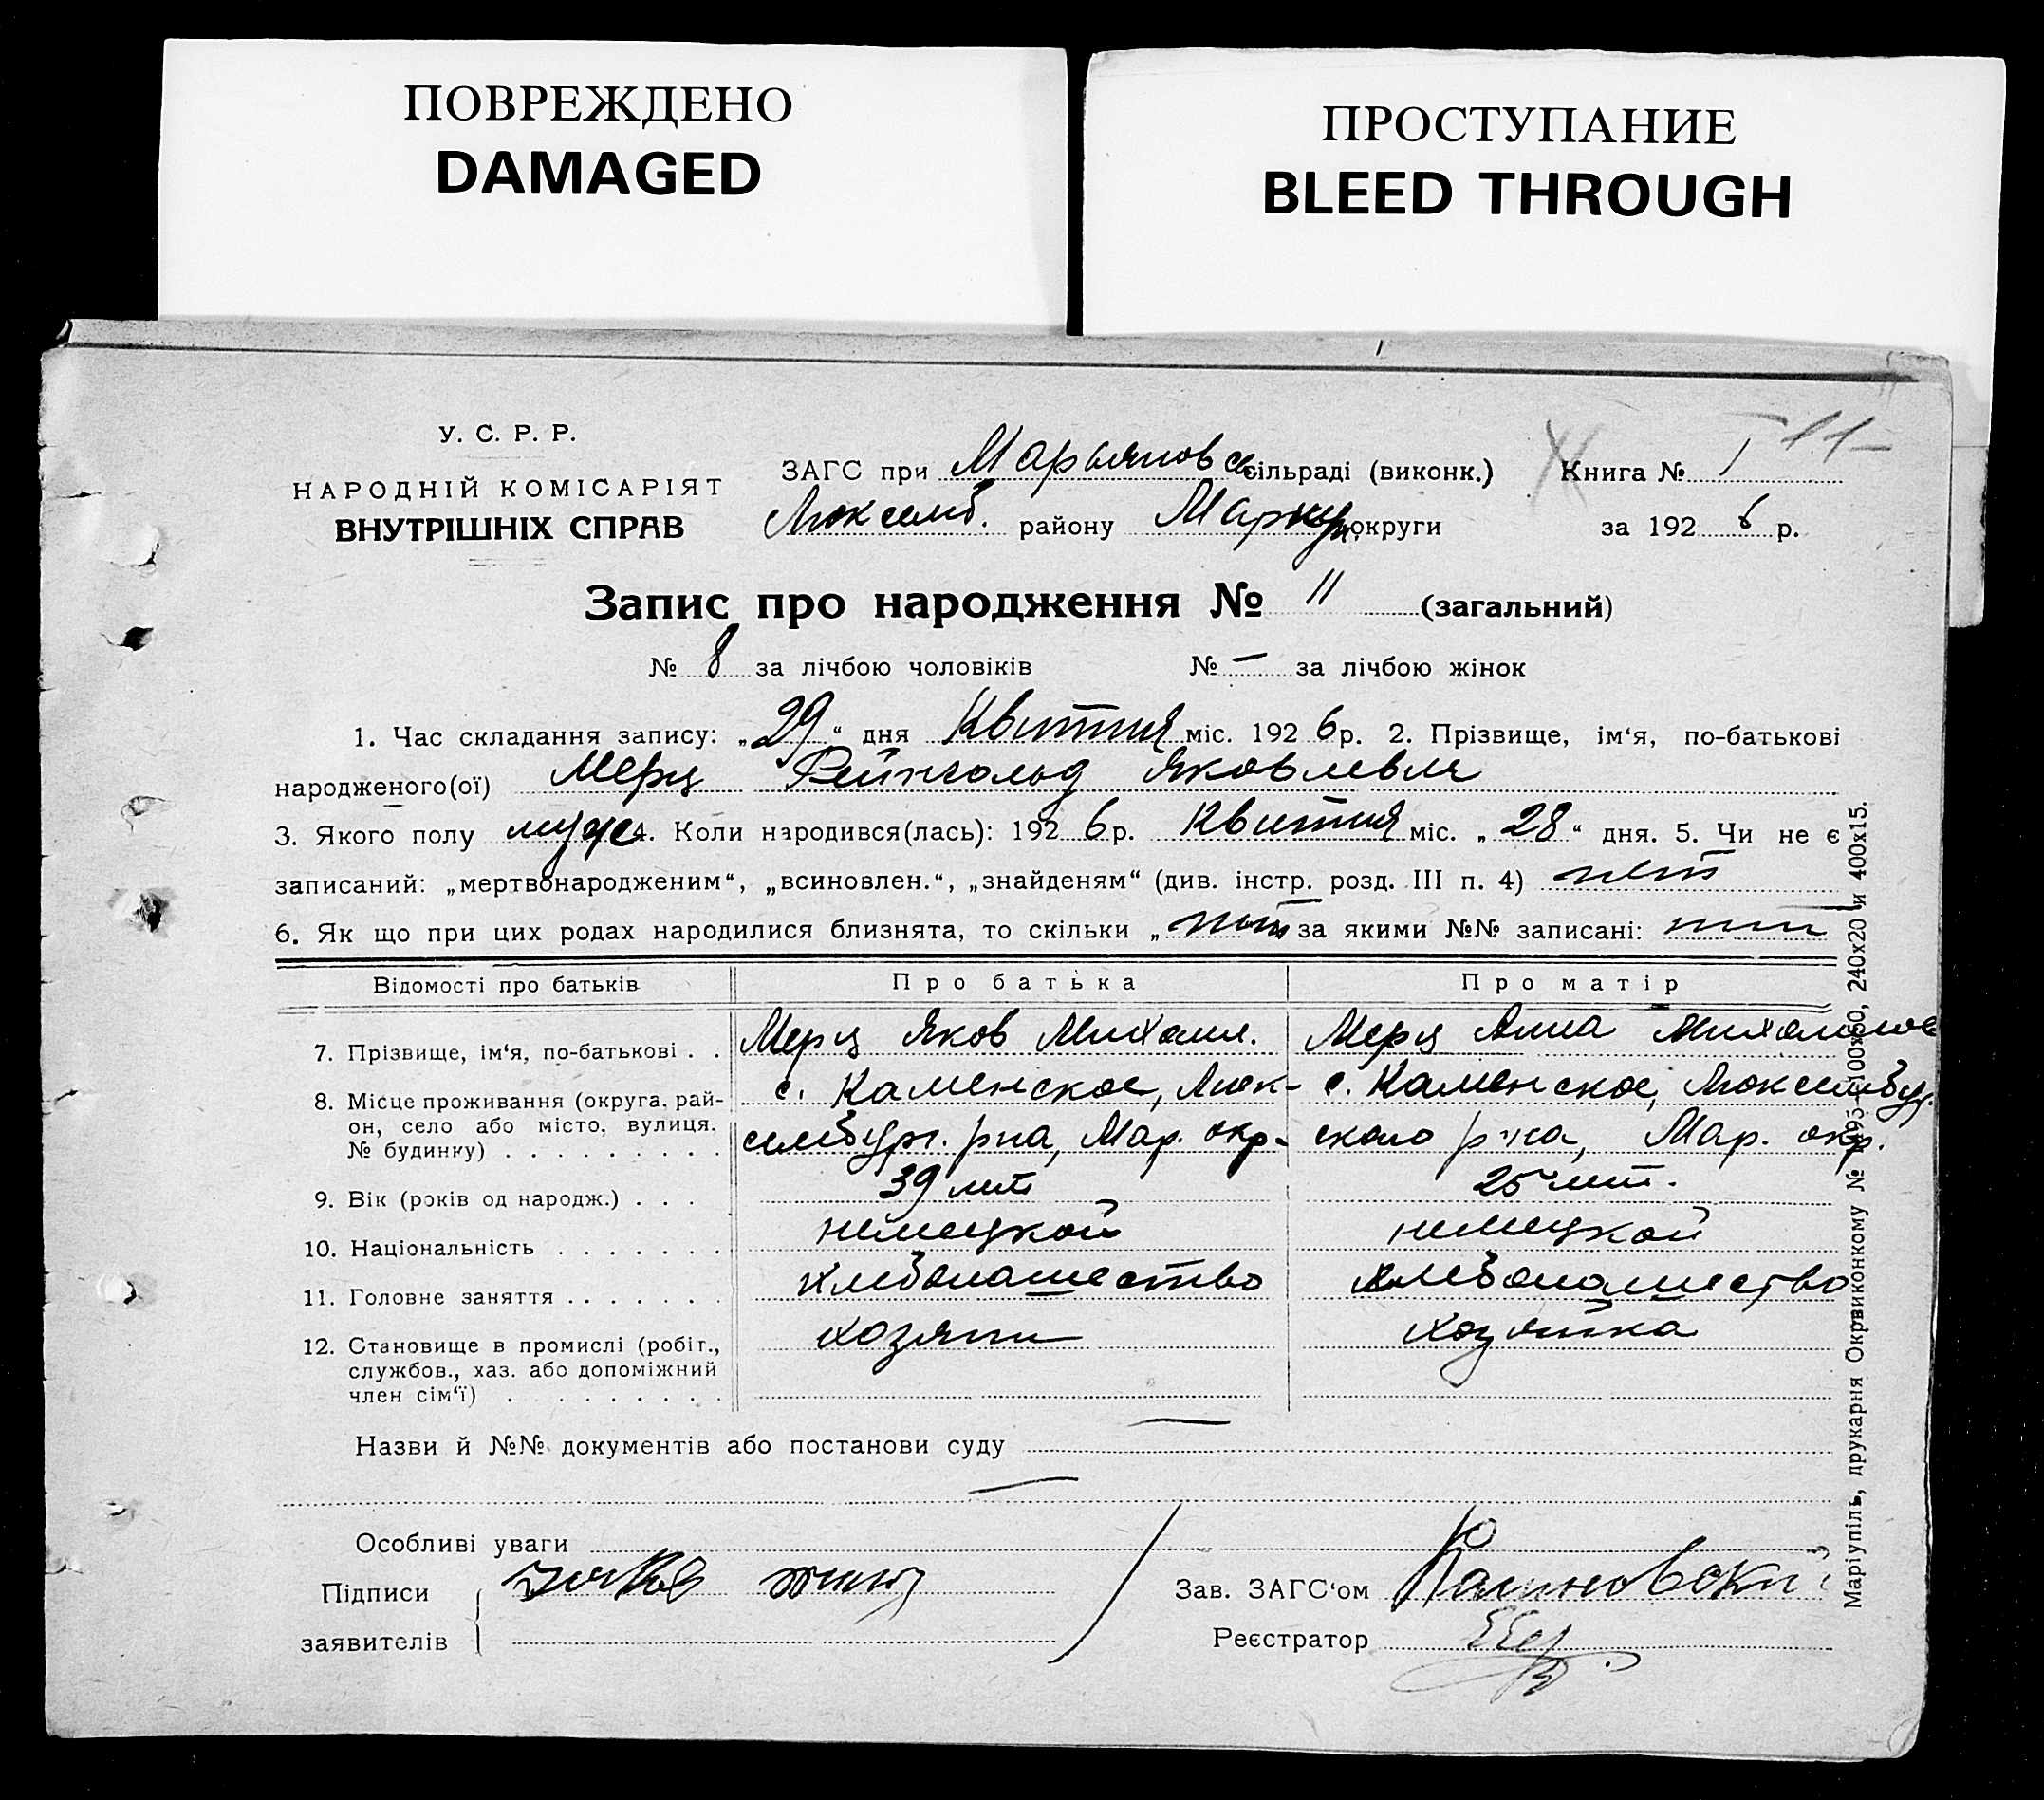 ПОВРЕЖДЕНО
DAMAGED
ПРОСТУПАНИЕ
BLEED THROUGH
У. С. Р. Р.
НАРОДНІЙ КОМІСАРІЯТ
ВНУТРІШНІХ СПРАВ
ЗАГС при Марьяновск сільраді (виконк.) Книга № I 11
Люксемб. району Мариуп. округи за 1926 р.
Запис про народження № 11 (загальний)
№ 8 за лічбою чоловіків № — за лічбою жінок
1. Час складання запису: „29“ дня Квитня міс. 1926 р. 2. Прізвище, ім‘я, по-батькові
народженого(ої) Мерц Рейнгольд Яковлевич
3. Якого полу муже 4. Коли народився(лась): 1926 р. Квитня міс. „28“ дня. 5. Чи не є
записаний: „мертвонародженим“, „всиновлен.“, „знайденям“ (див. інстр. розд. III п. 4) нет
6. Як що при цих родах народилися близнята, то скільки „ нет за якими №№ записані: нет
Відомості про батьків Про батька Про матір
7. Прізвище, ім‘я, по-батькові . . Мерц Яков Михаил. Мерц Анна Михайлов
8. Місце проживання (округа, рай- с. Каменское, Люк- с. Каменское, Люксембур.
он, село або місто, вулиця, сембург. р-на, Мар. окр. ского р-на, Мар. окр.
№ будинку) . . . . . . . . .
9. Вік (років од народж.) . . . 39 лет 25 лет.
10. Національність . . . . . . . немецкой немецкой
11. Головне заняття . . . . . . . хлебопашество хлебопашество
12. Становище в промислі (робіт., хозяин хозяйка
службов., хаз. або допоміжний
член сім‘ї) . . . . . . . . .
Назви й №№ документів або постанови суду —
—
Особливі уваги
Підписи Зав. ЗАГС‘ом Калиновски
заявителів Реєстратор
Маріупіль, друкарня Окрвиконкому 240x20 и 400x15.